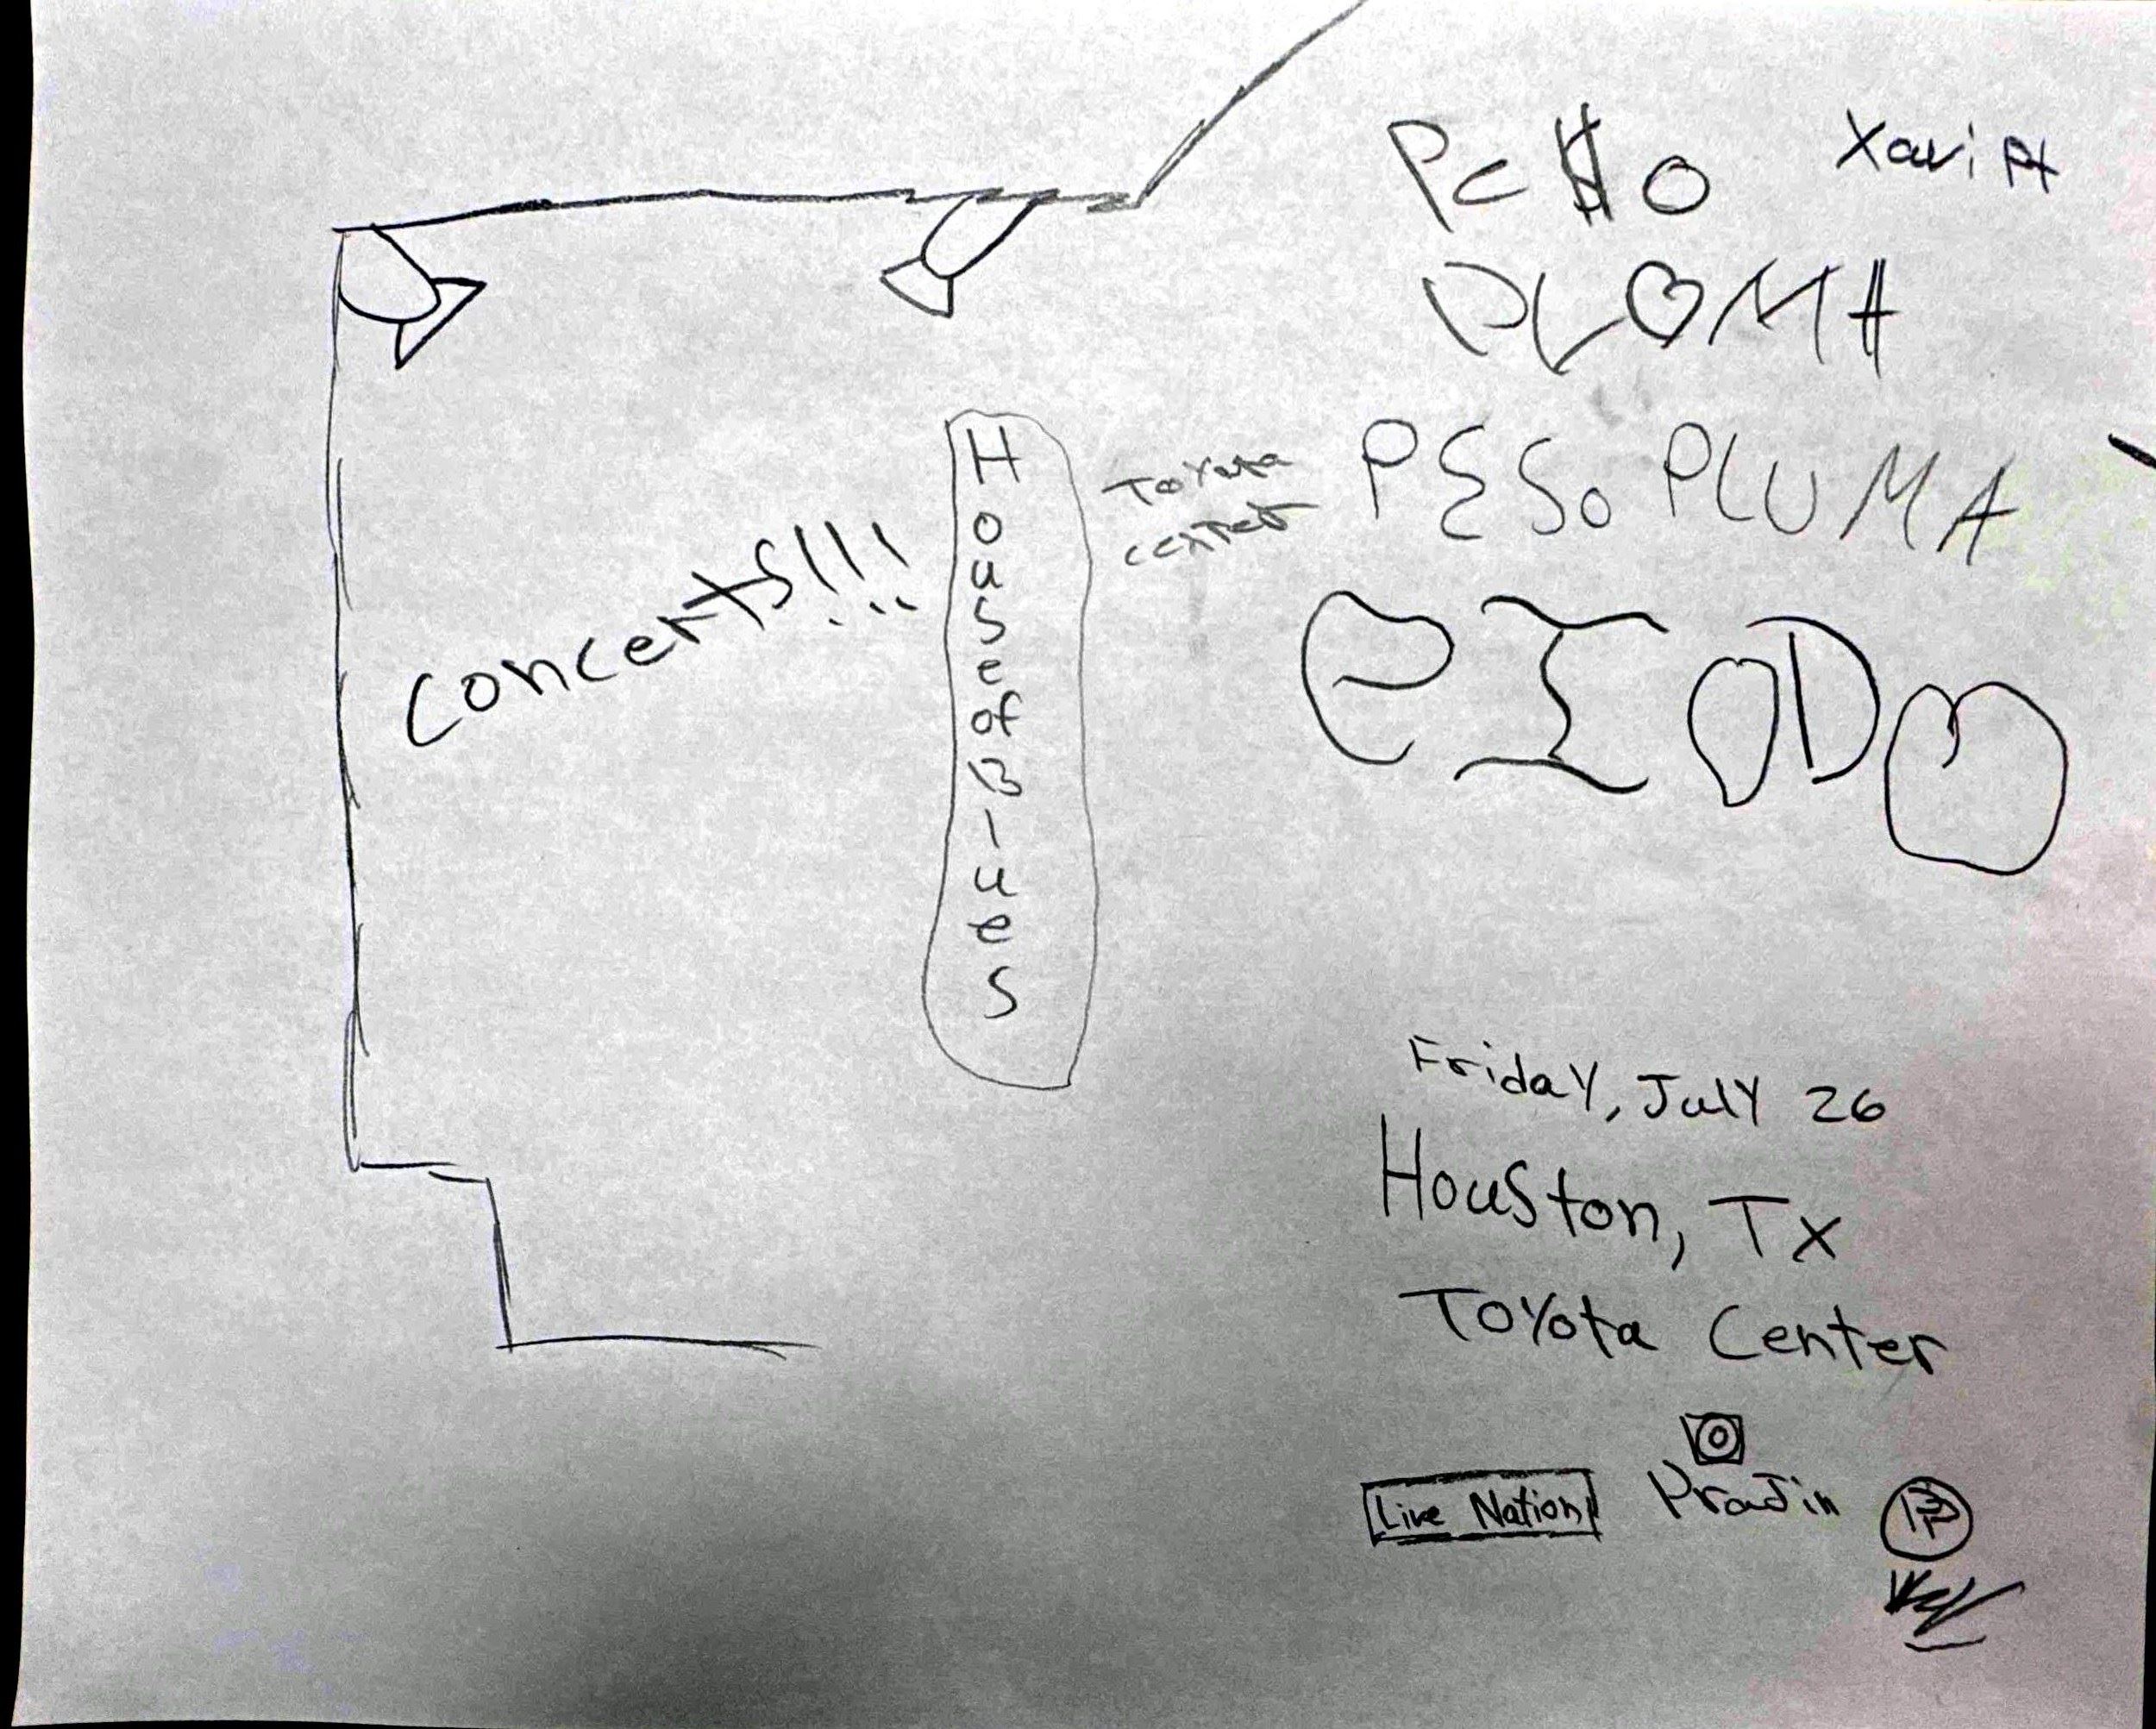 PE$O
Xavi
PLUMA
Toyota
center
PESO PLUMA
Concerts!!!
House of Blues
Friday, July 26
Houston, Tx
Toyota Center
Live Nation